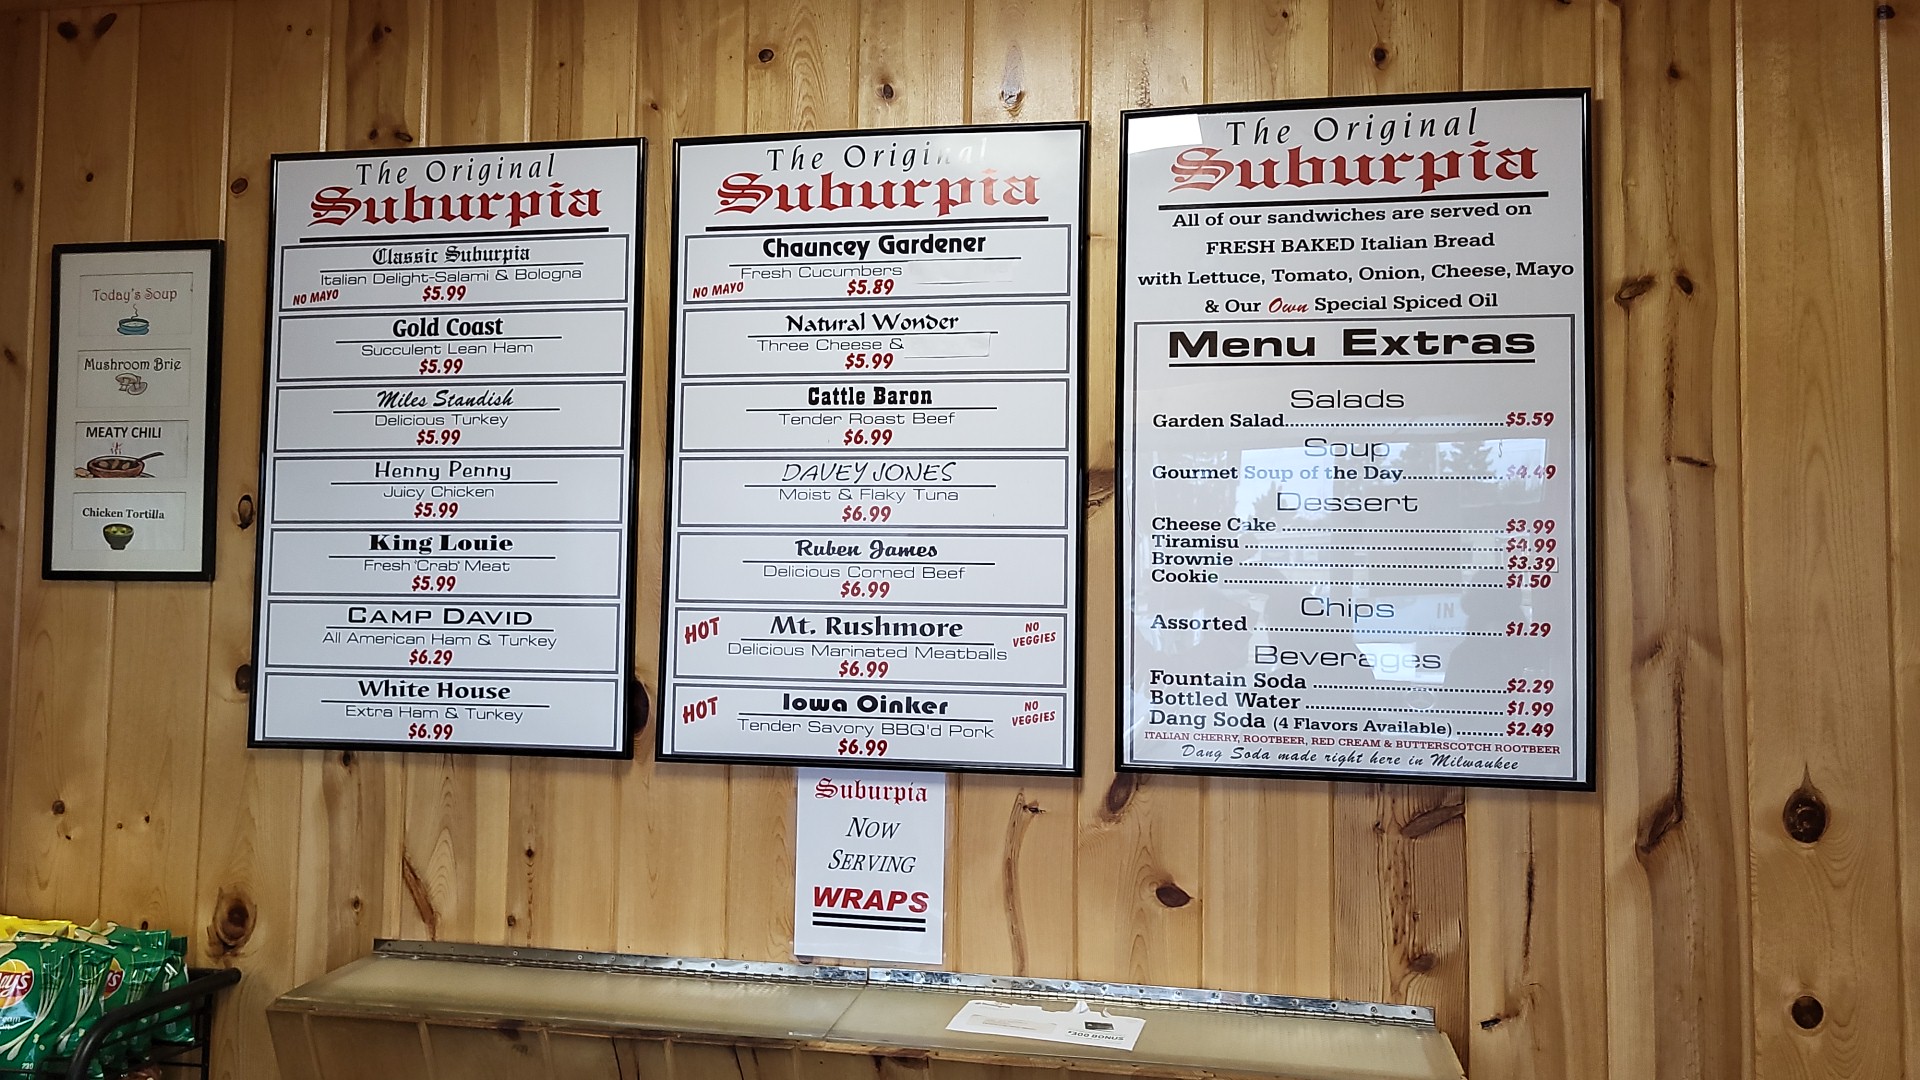 Today's Soup
Mushroom Brie
MEATY CHILI
Chicken Tortilla
The Original
Suburpia
Classic Suburpia
Italian Delight-Salami & Bologna
NO MAYO $5.99
Gold Coast
Succulent Lean Ham
$5.99
Miles Standish
Delicious Turkey
$5.99
Henny Penny
Juicy Chicken
$5.99
King Louie
Fresh 'Crab' Meat
$5.99
CAMP DAVID
All American Ham & Turkey
$6.29
White House
Extra Ham & Turkey
$6.99
The Original
Suburpia
Chauncey Gardener
Fresh Cucumbers
NO MAYO $5.89
Natural Wonder
Three Cheese &
$5.99
Cattle Baron
Tender Roast Beef
$6.99
DAVEY JONES
Moist & Flaky Tuna
$6.99
Ruben James
Delicious Corned Beef
$6.99
HOT Mt. Rushmore NO VEGGIES
Delicious Marinated Meatballs
$6.99
HOT Iowa Oinker NO VEGGIES
Tender Savory BBQ'd Pork
$6.99
Suburpia
NOW
SERVING
WRAPS
The Original
Suburpia
All of our sandwiches are served on
FRESH BAKED Italian Bread
with Lettuce, Tomato, Onion, Cheese, Mayo
& Our Own Special Spiced Oil
Menu Extras
Salads
Garden Salad $5.59
Soup
Gourmet Soup of the Day $4.49
Dessert
Cheese Cake $3.99
Tiramisu $4.99
Brownie $3.39
Cookie $1.50
Chips
Assorted $1.29
Beverages
Fountain Soda $2.29
Bottled Water $1.99
Dang Soda (4 Flavors Available) $2.49
ITALIAN CHERRY, ROOTBEER, RED CREAM & BUTTERSCOTCH ROOTBEER
Dang Soda made right here in Milwaukee
$300 BONUS